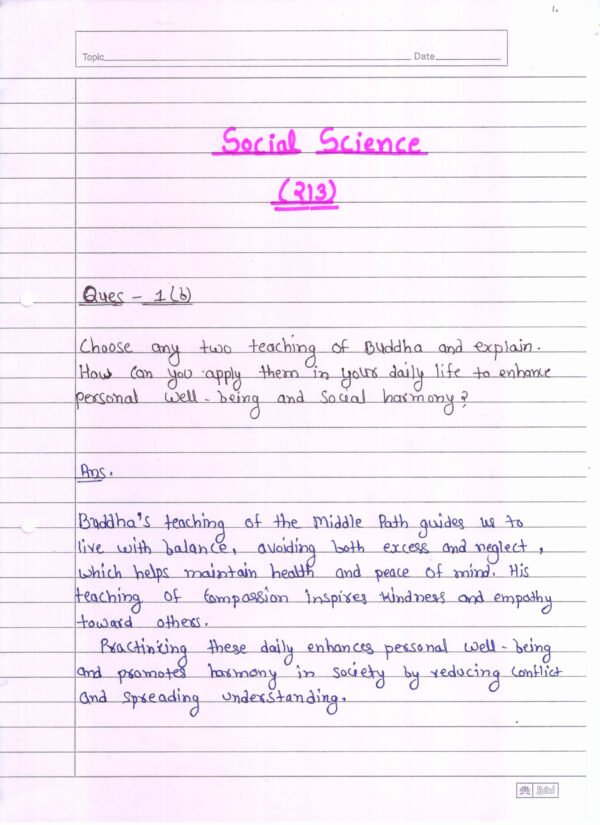 1.
Topic Date
Social Science
(213)
Ques - 1(b)
Choose any two teaching of Buddha and explain.
How can you apply them in your daily life to enhance
personal well-being and social harmony?
Ans.
Buddha's teaching of the Middle Path guides us to
live with balance, avoiding both excess and neglect,
which helps maintain health and peace of mind. His
teaching of Compassion inspires kindness and empathy
toward others.
Practinking these daily enhances personal well-being
and promotes harmony in society by reducing conflict
and spreading understanding.